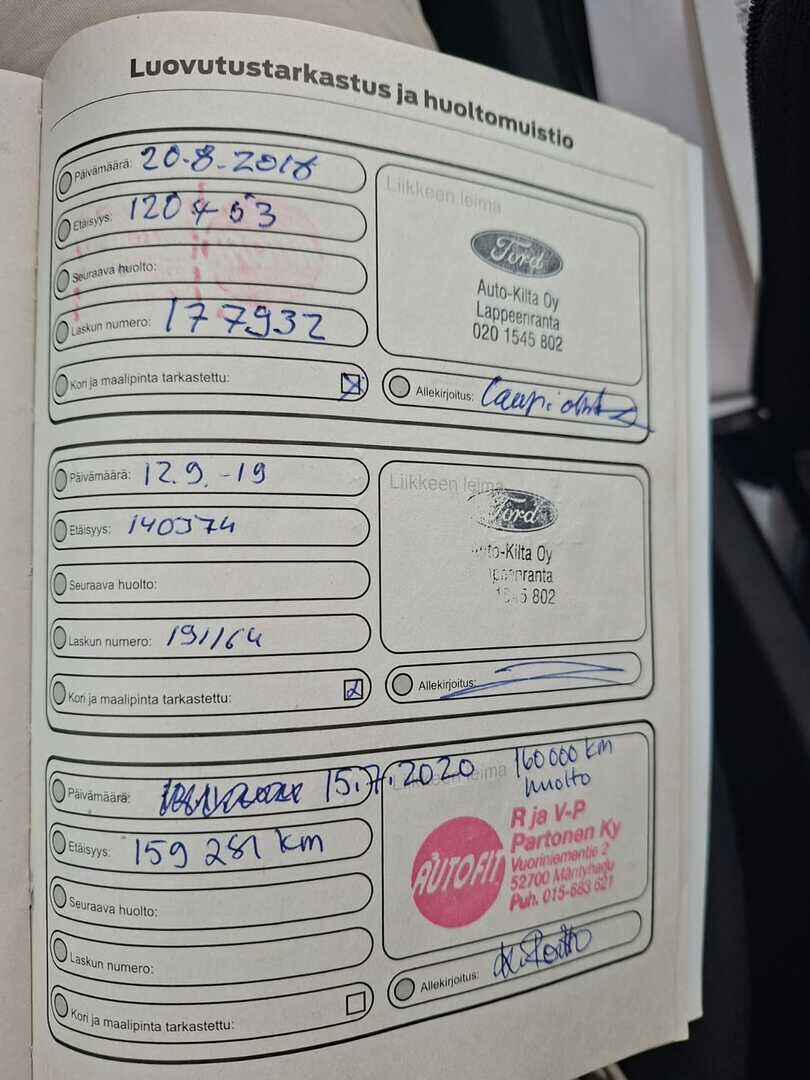 Luovutustarkastus ja huoltomuistio
Päivämäärä: 20.8.2018
Etäisyys: 120 453
Seuraava huolto:
Laskun numero: 177932
Kori ja maalipinta tarkastettu:
Liikkeen leima
Ford
Auto-Kilta Oy
Lappeenranta
020 1545 802
Allekirjoitus:
Päivämäärä: 12.9.-19
Etäisyys: 140374
Seuraava huolto:
Laskun numero: 191164
Kori ja maalipinta tarkastettu:
Liikkeen leima
Ford
Auto-Kilta Oy
Lappeenranta
1545 802
Allekirjoitus:
Päivämäärä: 15.7.2020
Etäisyys: 159 281 km
Seuraava huolto:
Laskun numero:
Kori ja maalipinta tarkastettu:
Liikkeen leima
160 000 km
huolto
AUTOFIT
R ja V-P
Partonen Ky
Vuoriniementie 2
52700 Mäntyharju
Puh. 015-683 621
Allekirjoitus: